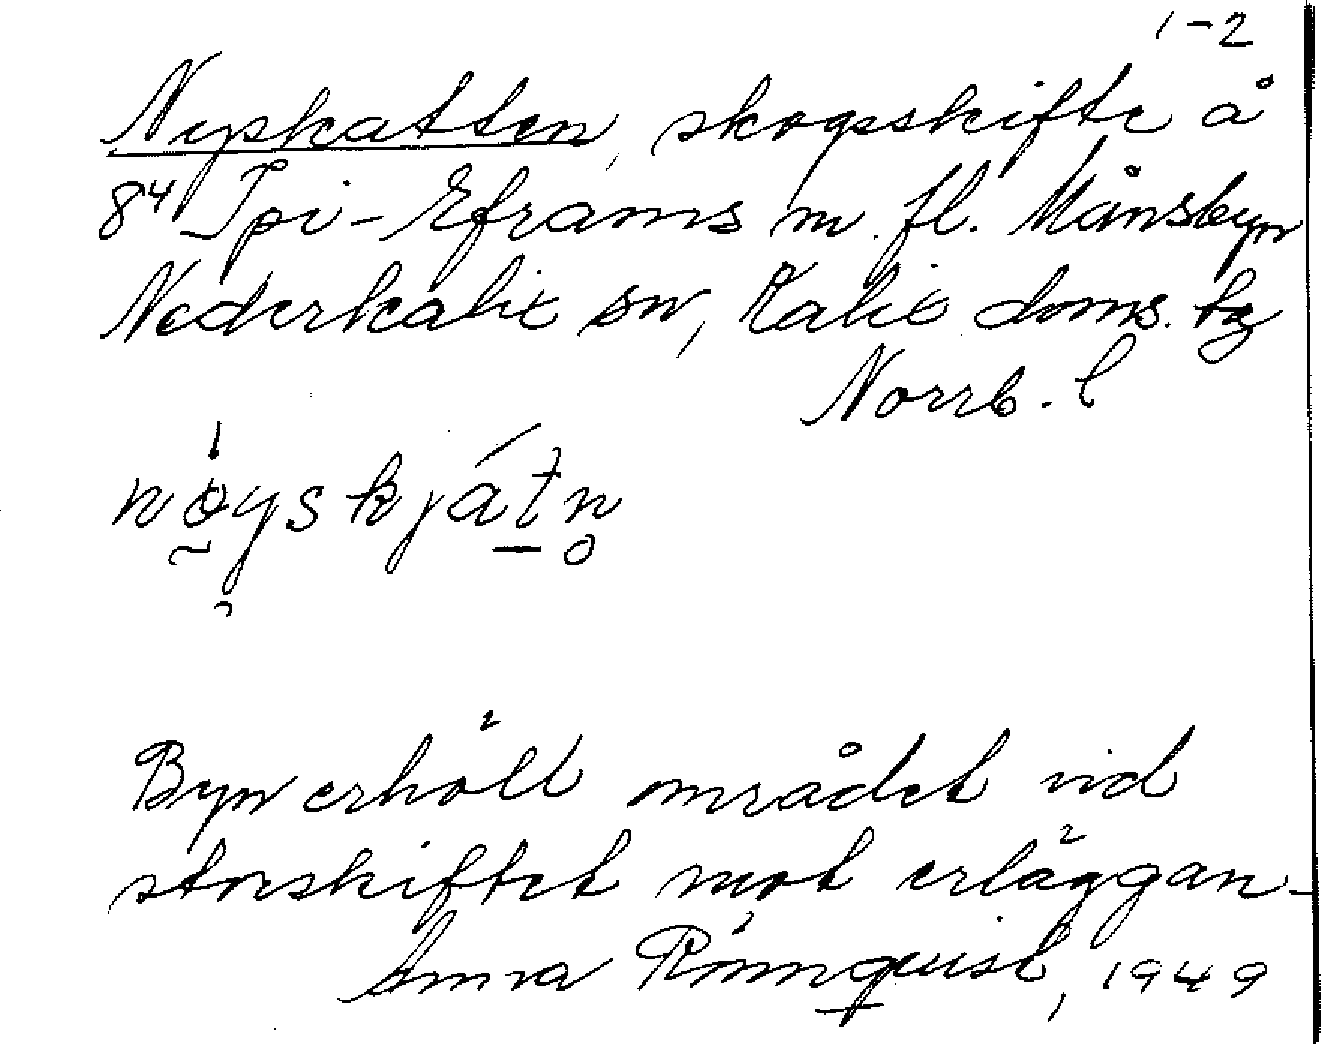 1-2
Nyskatten, skogsskifte å
84 Ipi-Eframs m. fl. Månsbyn
Nederkalix sn, Kalix doms. hg
Norrb. l
nøyskjátn
Byn erhöll området vid
storskiftet mot erläggan-
Anna Rönnquist, 1949